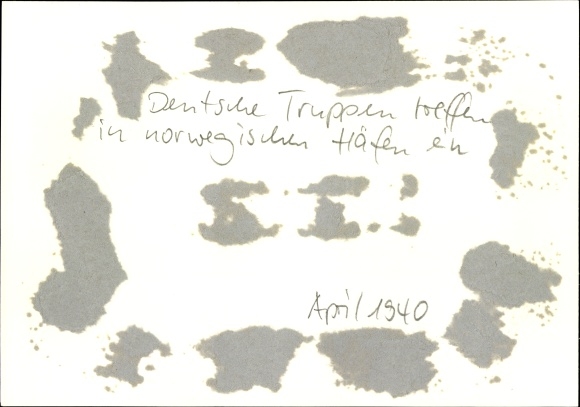 Deutsche Truppen treffen
in norwegischen Häfen ein
April 1940